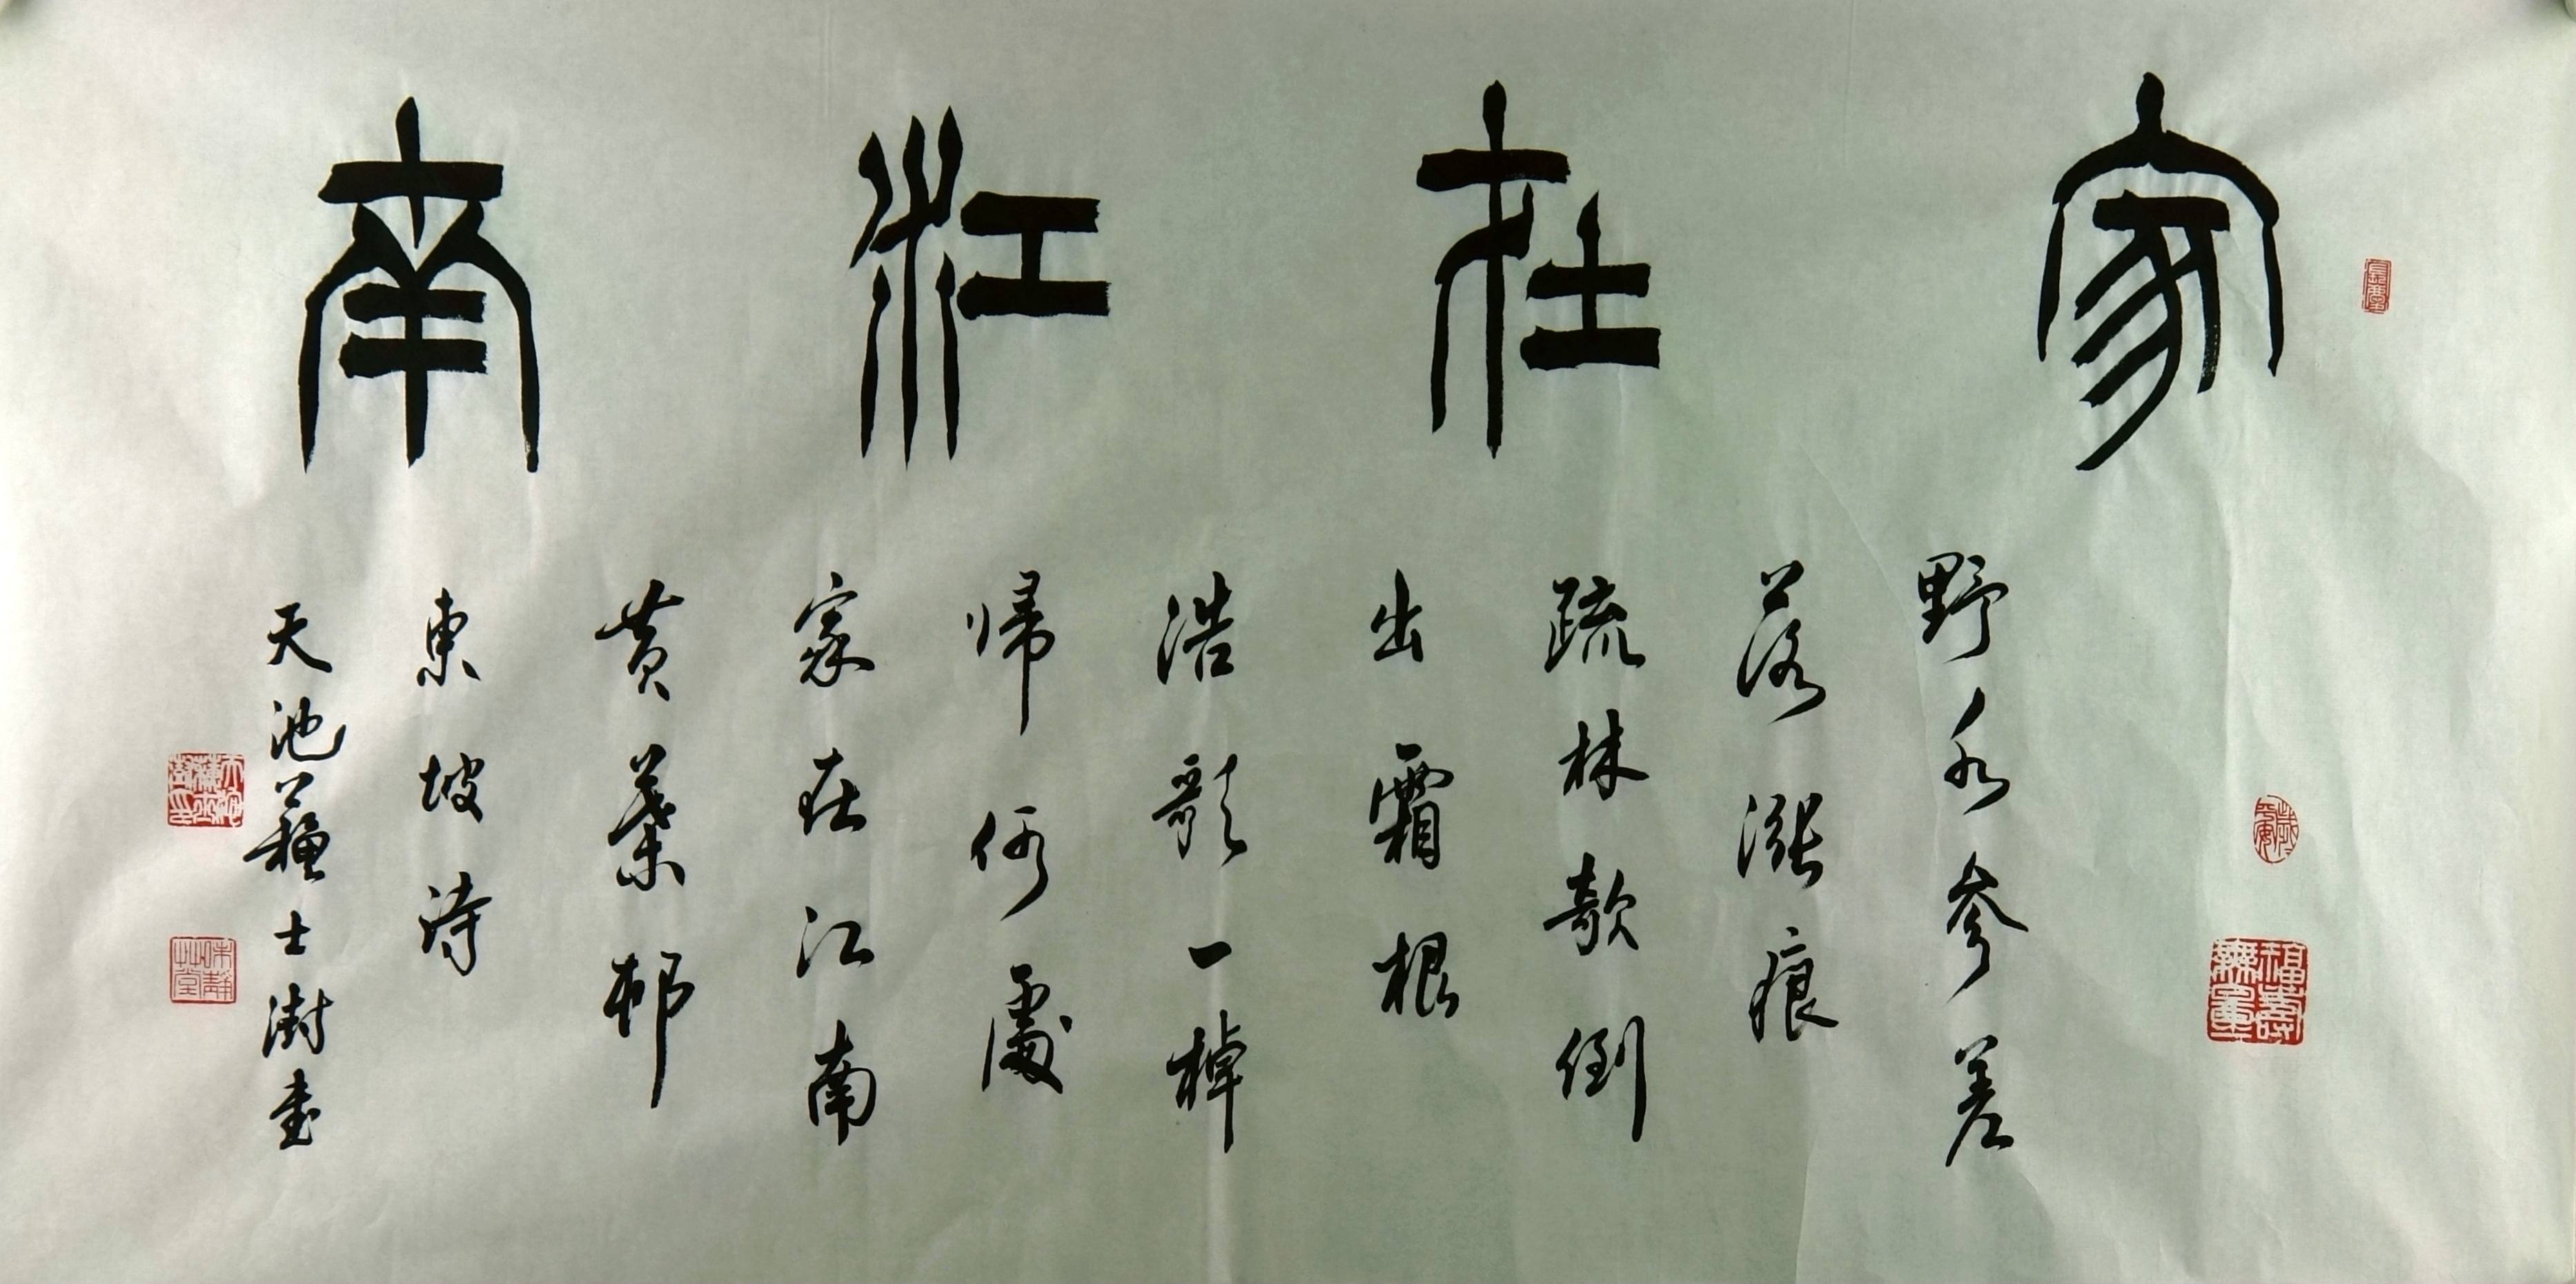 家在江南
野水參差
落漲痕
疏林欹倒
出霜根
浩歌一棹
歸何處
家在江南
黃葉邨
東坡詩
天池蘇士澍書
福壽無量